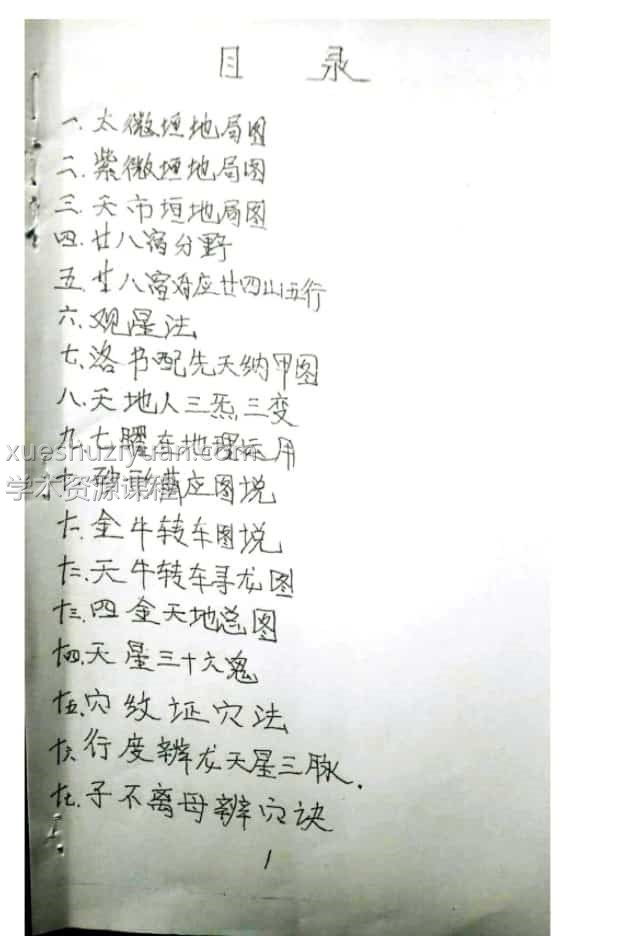 目 录
一.太微垣地局图
二.紫微垣地局图
三.天市垣地局图
四.廿八宿分野
五.廿八宿对应廿四山五行
六.观星法
七.洛书配先天纳甲图
八.天地人三炁三变
九.七曜在地理运用
xueshuziyuan.com
十. 应图说
学术资源课程
十一.金牛转车图说
十二.天牛转车寻龙图
十三.四金天地总图
十四.天星三十六鬼
十五.穴纹证穴法
十六.行度辨龙天星三脉.
十七.子不离母辨穴诀
1